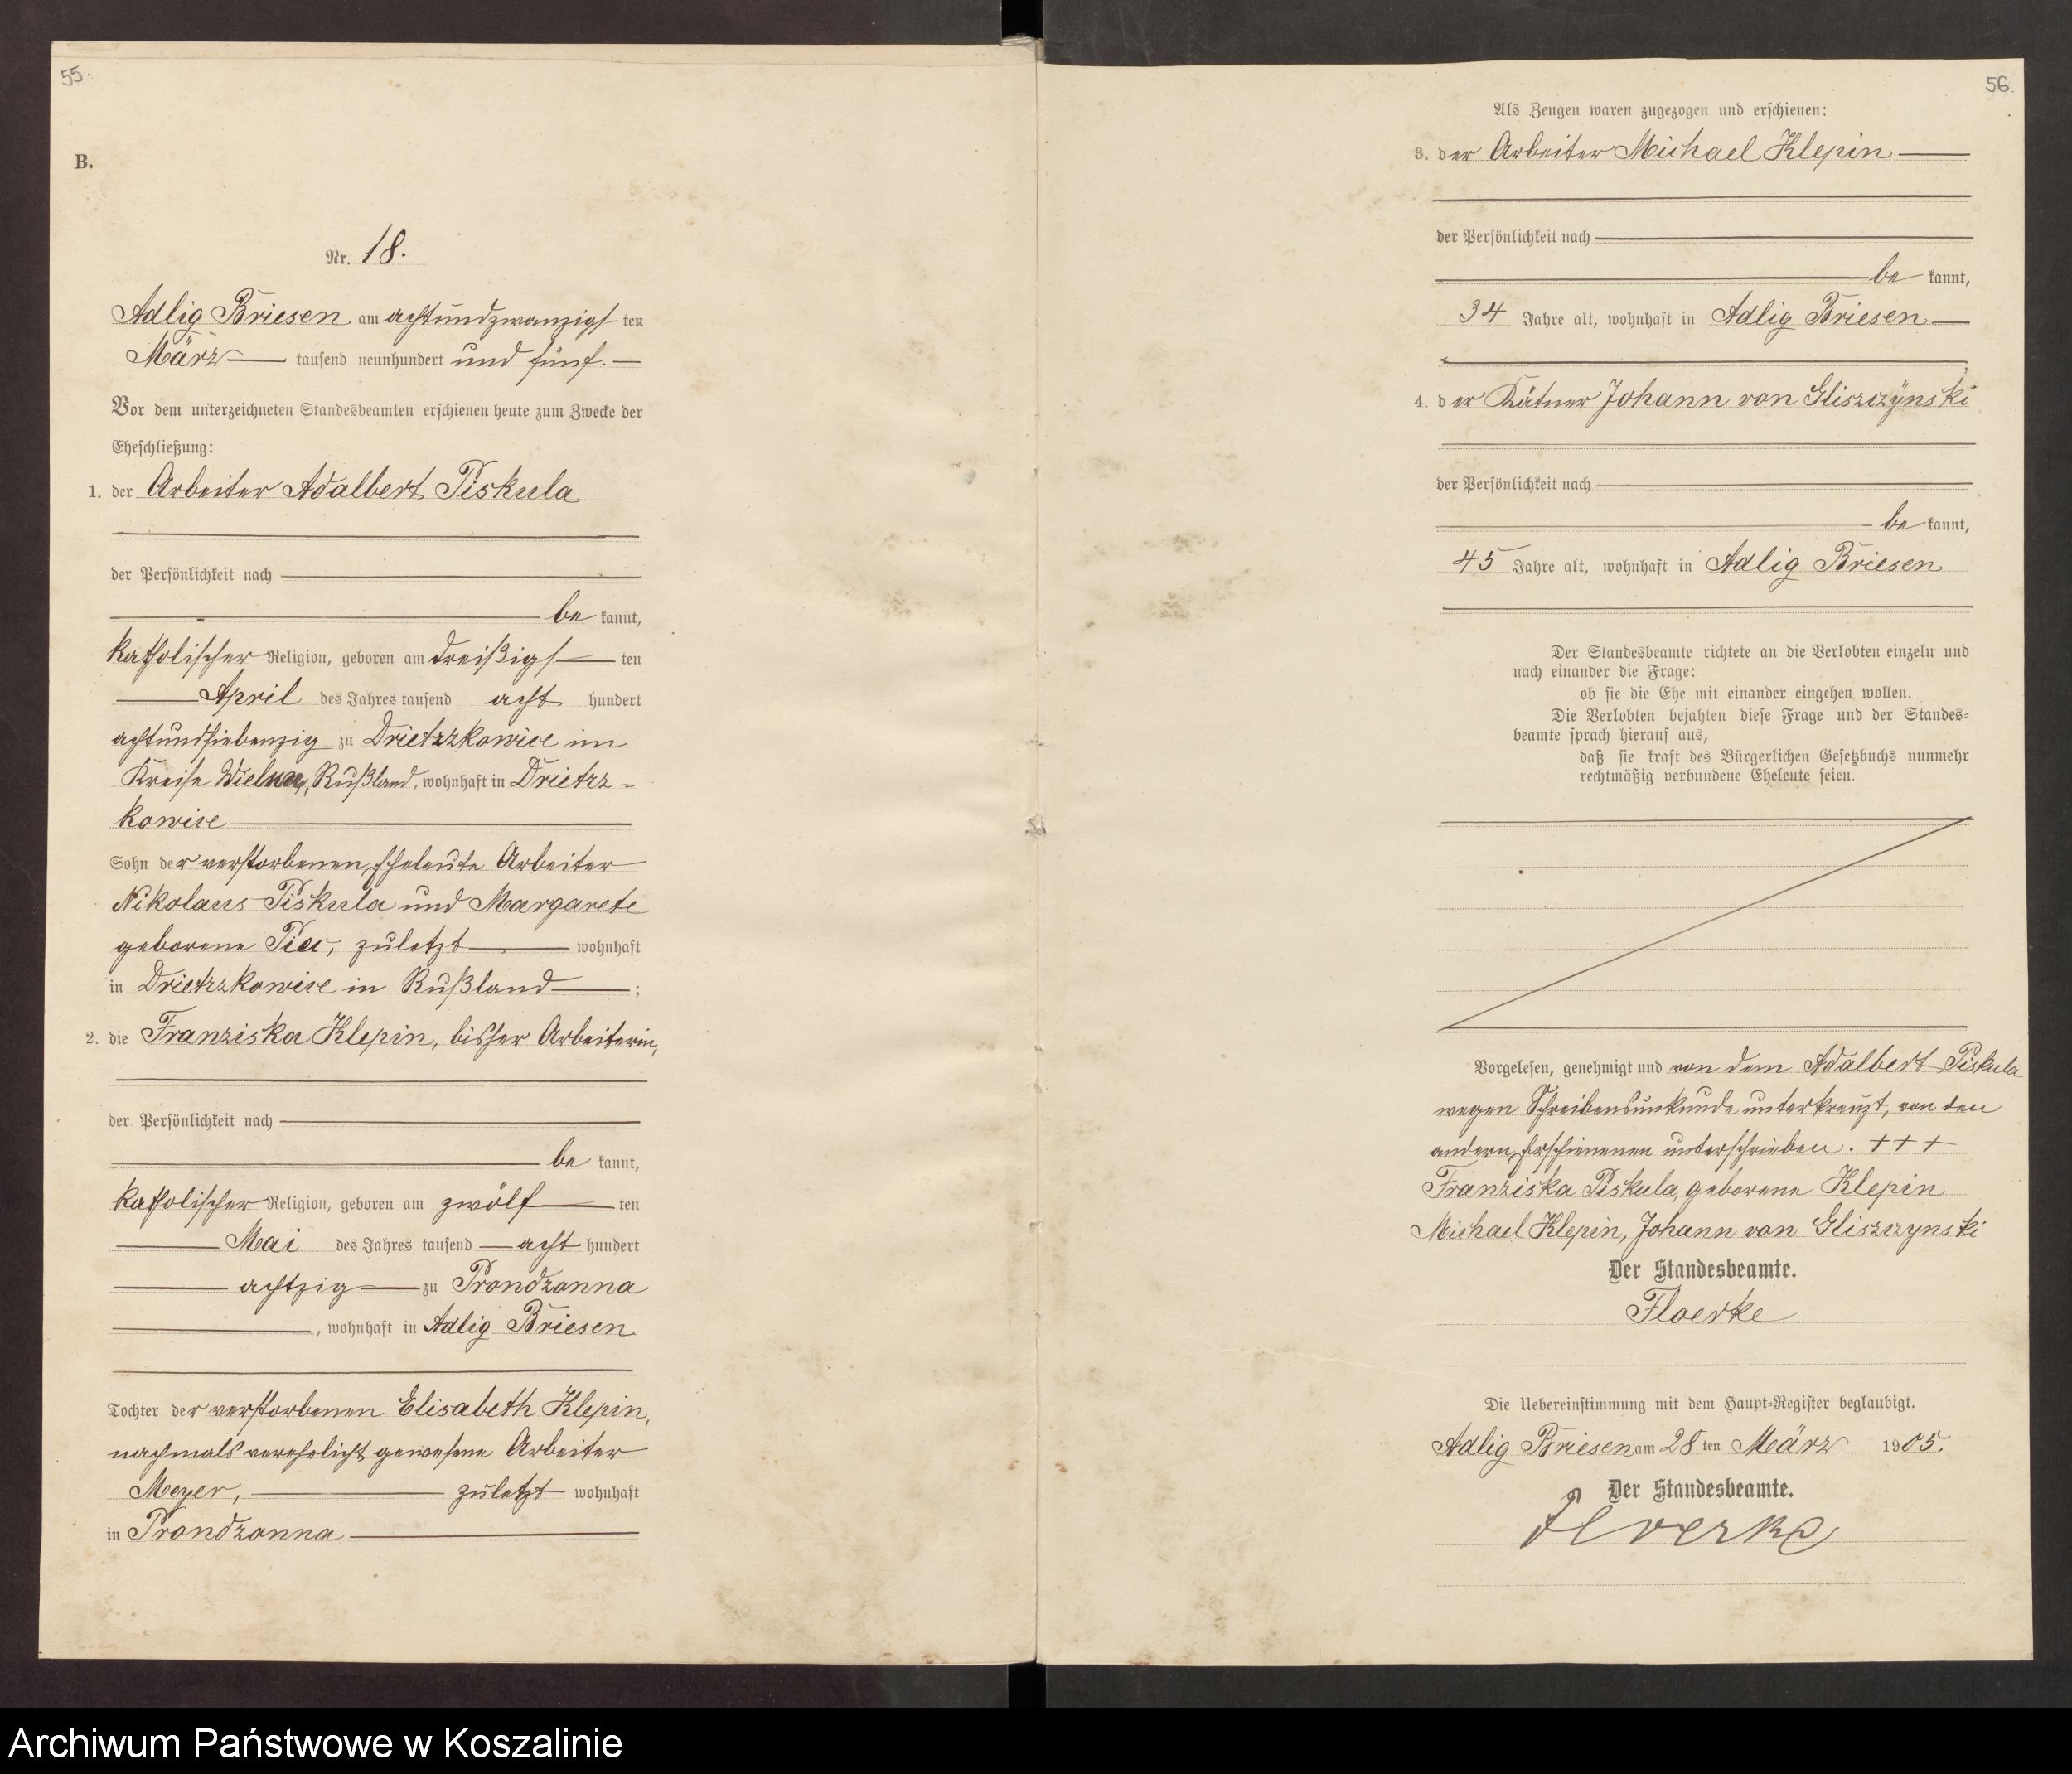 55.
B.
Nr. 18.
Adlig Briesen am achtundzwanzigsten
März tausend neunhundert und fünf.
Vor dem unterzeichneten Standesbeamten erschienen heute zum Zwecke der
Eheschließung:
1. der Arbeiter Adalbert Piskula
der Persönlichkeit nach
be kannt,
katholischer Religion, geboren am dreißigsten
April des Jahres tausend acht hundert
achtundsiebenzig zu Drietrzkowice im
Kreise Rußland, wohnhaft in Drietrz-
kowice
Sohn der verstorbenen Eheleute Arbeiter
Nikolaus Piskula und Margarete
geborene zuletzt wohnhaft
in Drietrzkowice in Rußland ;
2. die Franziska Klepin, bisher Arbeiterin,
der Persönlichkeit nach
be kannt,
katholischer Religion, geboren am zwölften
Mai des Jahres tausend acht hundert
achtzig zu Prondzonna
, wohnhaft in Adlig Briesen
Tochter der verstorbenen Elisabeth Klepin,
nachmals verehelicht gewesene Arbeiter
Meyer, zuletzt wohnhaft
in Prondzonna
56.
Als Zeugen waren zugezogen und erschienen:
3. der Arbeiter Michael Klepin
der Persönlichkeit nach
be kannt,
34 Jahre alt, wohnhaft in Adlig Briesen
4. der Kätner Johann von Gliszczynski
der Persönlichkeit nach
be kannt,
45 Jahre alt, wohnhaft in Adlig Briesen
Der Standesbeamte richtete an die Verlobten einzeln und
nach einander die Frage:
ob sie die Ehe mit einander eingehen wollen.
Die Verlobten bejahten diese Frage und der Standes-
beamte sprach hierauf aus,
daß sie kraft des Bürgerlichen Gesetzbuchs nunmehr
rechtmäßig verbundene Eheleute seien.
Vorgelesen, genehmigt und von dem Adalbert Piskula
wegen Schreibensunkunde unterkreuzt, von den
andern Erschienenen unterschrieben. +++
Franziska Piskula, geborene Klepin
Michael Klepin, Johann von Gliszczynski
Der Standesbeamte.
Floerke
Die Uebereinstimmung mit dem Haupt-Register beglaubigt.
Adlig Briesen am 28 ten März 1905.
Der Standesbeamte.
Floerke
Archiwum Państwowe w Koszalinie